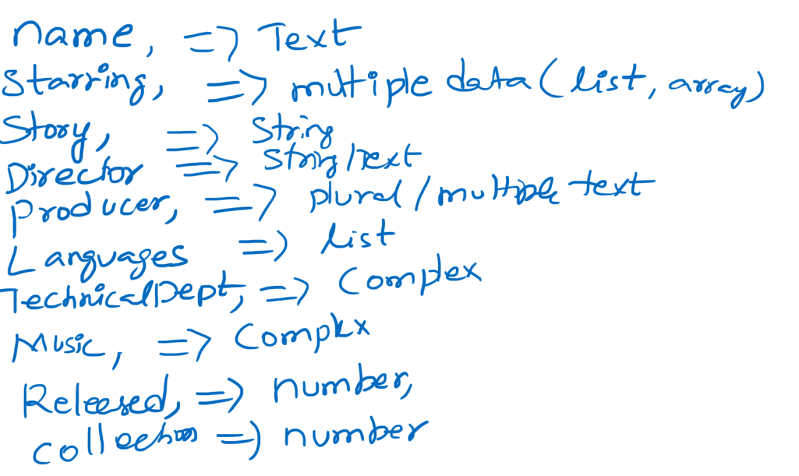 name, => Text
Starring, => multiple data (list, array)
Story, => String
Director => String/Text
Producer, => plural/multiple text
Languages => list
TechnicalDept, => Complex
Music, => Complex
Released, => number,
collection => number